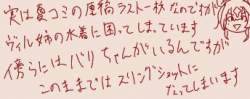 実は夏コミの原稿ラスト一枚なのですが
ヴィル姉の水着に困ってしまっています
傍らにはバリちゃんがいるんですが
このままではスリングショットに
なってしまいます